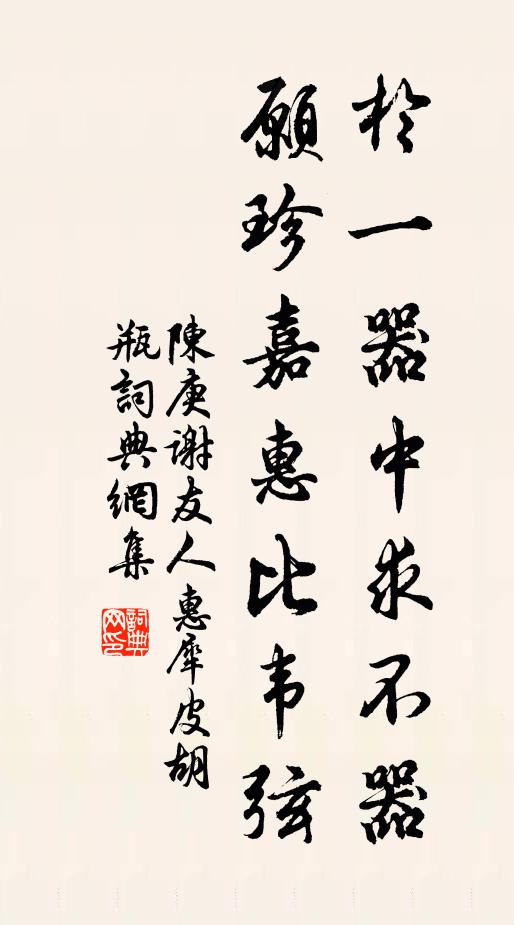 於一器中求不器
願珍嘉惠比韦弦
陳庚谢友人惠犀皮胡
瓶詞典網集
詞典
网印